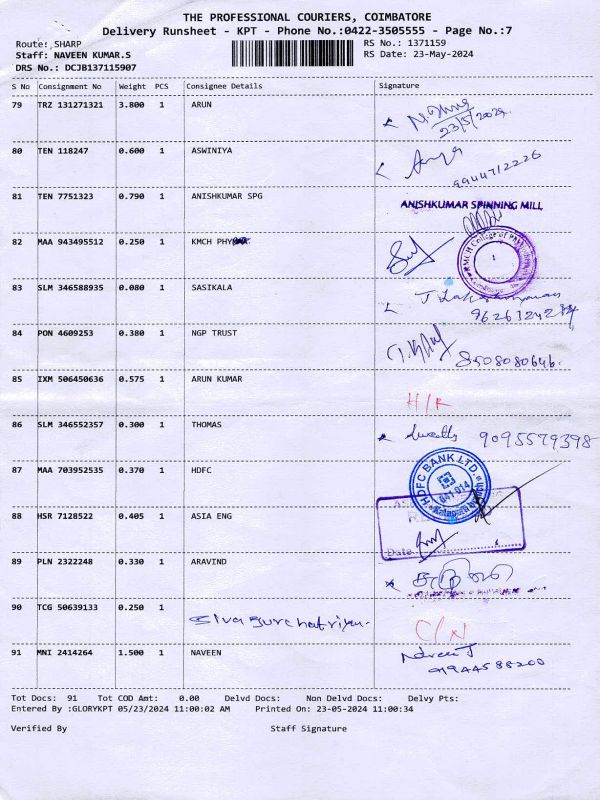 THE PROFESSIONAL COURIERS, COIMBATORE
Delivery Runsheet - KPT - Phone No.:0422-3505555 - Page No.:7
Route: SHARP RS No.: 1371159
Staff: NAVEEN KUMAR.S RS Date: 23-May-2024
DRS No.: DCJB137115907
S No Consignment No Weight PCS Consignee Details Signature
79 TRZ 131271321 3.800 1 ARUN
23/5/2024
80 TEN 118247 0.600 1 ASWINIYA
9944712226
81 TEN 7751323 0.790 1 ANISHKUMAR SPG ANISHKUMAR SPINNING MILL
82 MAA 943495512 0.250 1 KMCH
83 SLM 346588935 0.080 1 SASIKALA
84 PON 4609253 0.380 1 NGP TRUST 8508080646.
85 IXM 506450636 0.575 1 ARUN KUMAR
H/R
86 SLM 346552357 0.300 1 THOMAS
9095579398
87 MAA 703952535 0.370 1 HDFC HDFC BANK LTD.
88 HSR 7128522 0.405 1 ASIA ENG
Date
89 PLN 2322248 0.330 1 ARAVIND
90 TCG 50639133 0.250 1
C/N
91 MNI 2414264 1.500 1 NAVEEN Naveen J
9944588200
Tot Docs: 91 Tot COD Amt: 0.00 Delvd Docs: Non Delvd Docs: Delvy Pts:
Entered By :GLORYKPT 05/23/2024 11:00:02 AM Printed On: 23-05-2024 11:00:34
Verified By Staff Signature